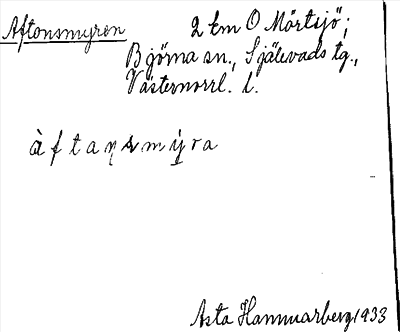 Aftonsmyren 2 km O Mörtsjö;
Björna sn., Själevads tg.,
Västernorrl. l.
àftaṇsmýra
Asta Hammarberg 1933